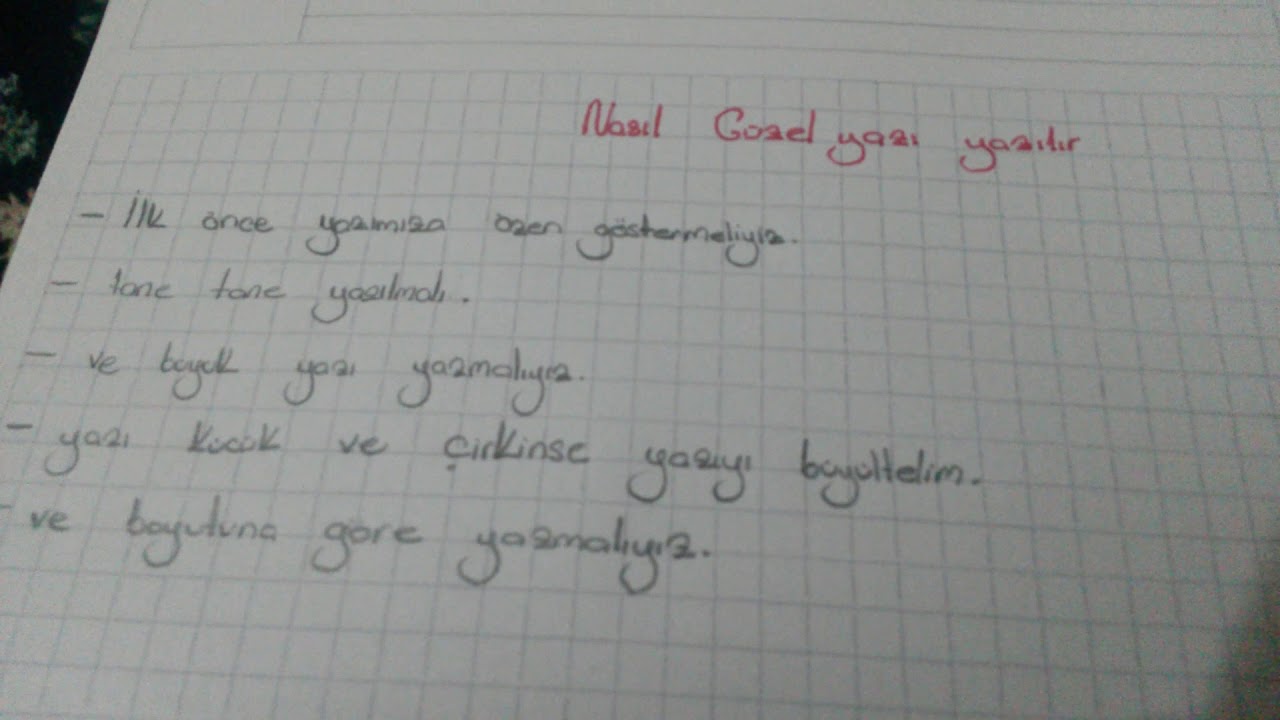 Nasıl Gozel yazı yazılır
- İlk önce yazımıza ozen göstermeliyiz.
- tane tane yazılmalı.
- ve boyok yazı yazmalıyız.
- yazı kucuk ve çirkinse yazıyı boyultelim.
- ve boyutuna göre yazmalıyız.